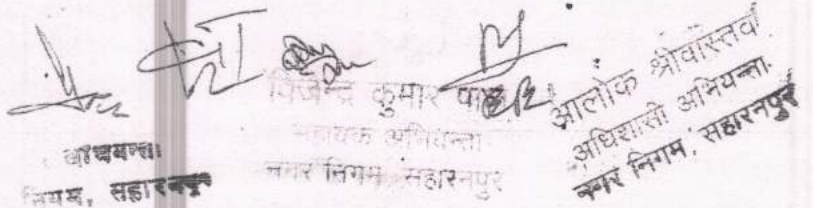 अभियन्ता
निगम, सहारनपुर
विजेन्द्र कुमार पाल
सहायक अभियन्ता
नगर निगम, सहारनपुर
आलोक श्रीवास्तव
अधिशासी अभियन्ता
नगर निगम, सहारनपुर